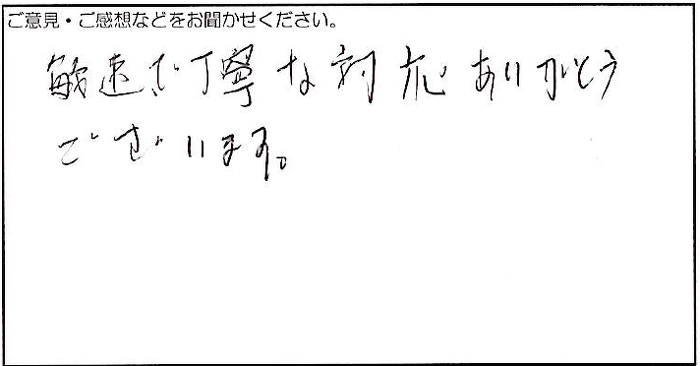 ご意見・ご感想などをお聞かせください。
敏速で丁寧な対応ありがとう
ございます。